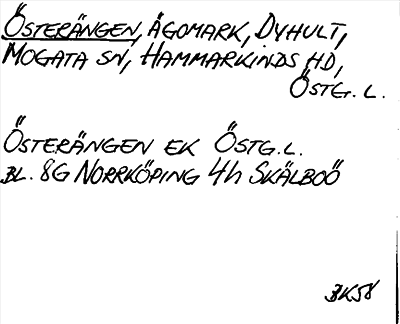 ÖSTERÄNGEN, ÄGOMARK, DYHULT,
MOGATA SN, HAMMARKINDS HD,
ÖSTG. L.
ÖSTERÄNGEN EK ÖSTG.L.
BL. 8G NORRKÖPING 4h SKÄLBOÖ
BK58